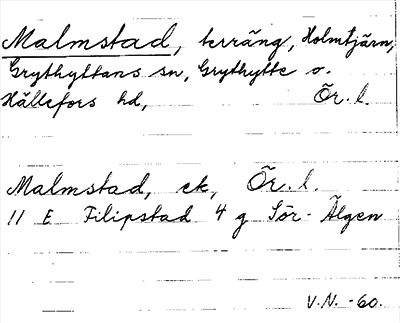 Malmstad, terräng, Holmtjärn,
Grythyttans sn, Grythytte o.
Hällefors hd, Ör. l.
Malmstad, ek, Ör. l.
11 E Filipstad 4 g Sör-Älgen
V.N. -60.